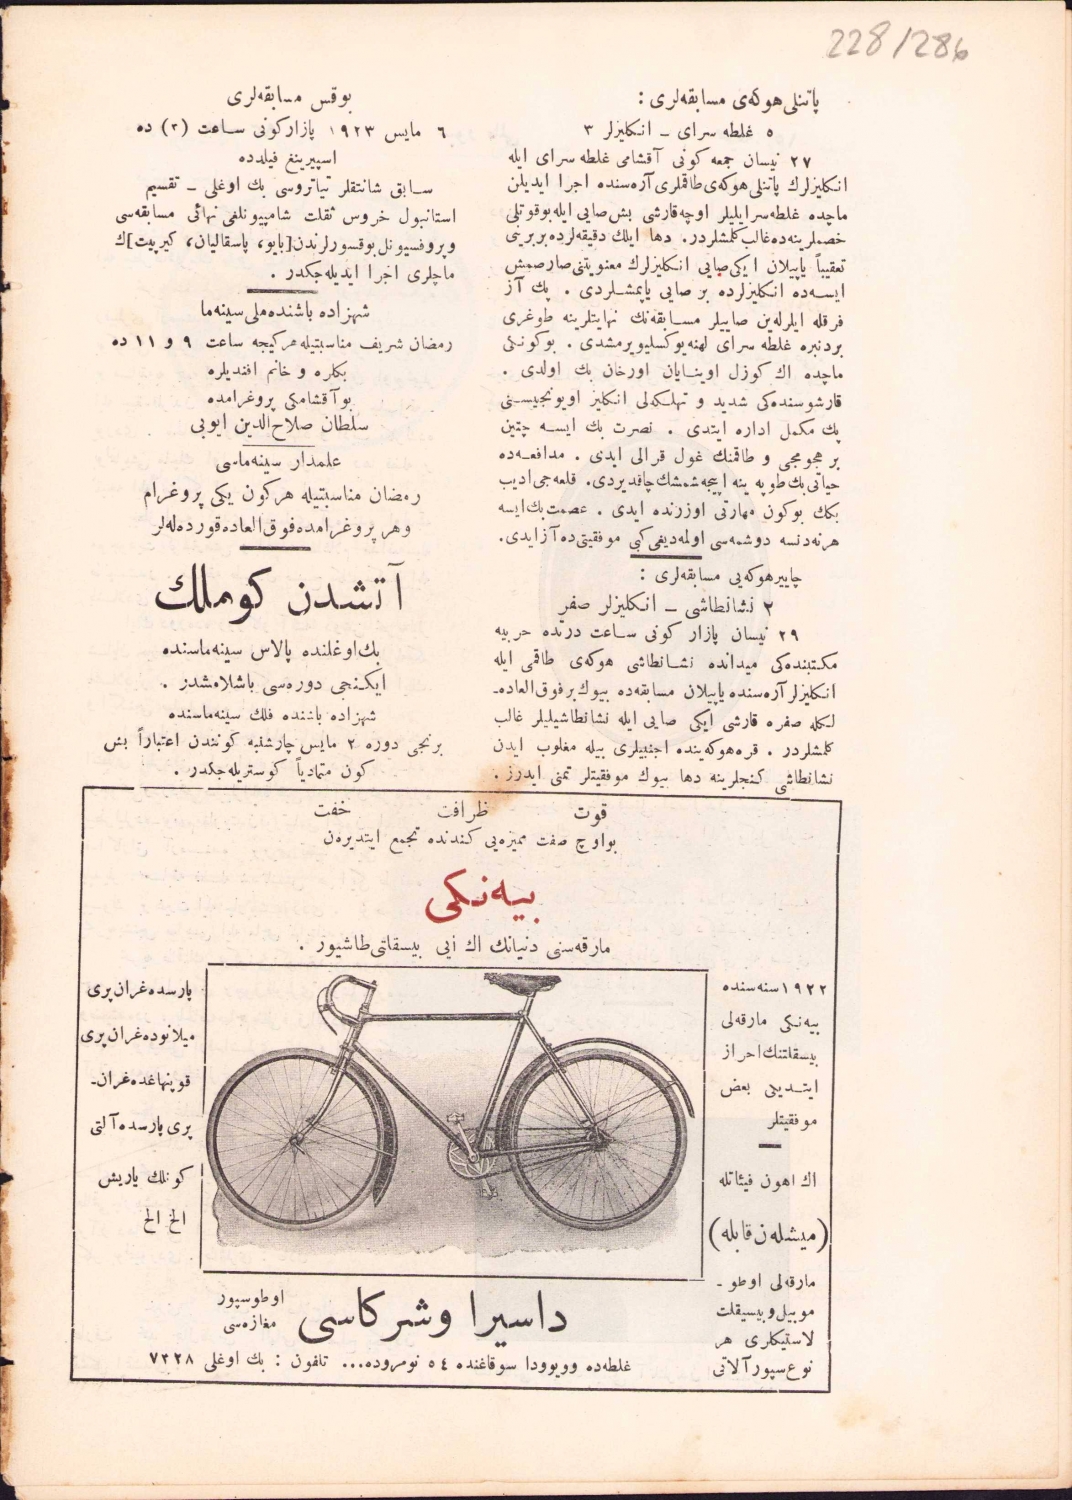 228/286
پاتنلی هوکه‌ی مسابقه‌لری :
٥ غلطه سرای ــ انكلیزلر ٣
٢٧ نیسان جمعه کونی آقشامی غلطه سرای ایله
انكلیزلرك پاتنلی هوکه‌ی طاقملری آره‌سنده اجرا ایدیلن
ماچده غلطه‌سرایلیلر اوچه قارشی بش صایی ایله بوقوتلی
خصملرینه‌ده غالب کلمشلردر. دها ایلك دقیقه‌لرده بربرینی
تعقیباً یاپیلان ایکی صایی انكلیزلرك معنویتنی صارصمش
ایسه‌ده انكلیزلرده بر صایی یاپمشلردی . پك آز
فرقله ایلرله‌ین صاییلر مسابقه‌نك نهایتلرینه طوغری
بردنبره غلطه سرای لهنه یوکسلیویرمشدی . بوکونکی
ماچده اك کوزل اوینایان اورخان بك اولدی .
قارشوسنده‌کی شدید و تهلکه‌لی انكلیز اویونجیسنی
پك مکمل اداره ایتدی . نصرت بك ایسه چتین
بر هجومجی و طاقمنك غول قرالی ایدی . مدافعه‌ده
حیاتی بك طوپه ینه اپیجه شمشك چاقدیردی. قلعه‌جی ادیب
بكك بوکون مهارتی اوزرنده ایدی . عصمت بك ایسه
هرنه‌دنسه دوشمه‌سی اولمه‌دیغی کبی موفقیتی‌ده آز ایدی.
چاییر هوکه‌یی مسابقه‌لری :
٢ نشانطاشی ــ انكلیزلر صفر
٢٩ نیسان پازار کونی ساعت درتده حربیه
مکتبنده‌کی میدانده نشانطاشی هوکه‌ی طاقمی ایله
انكلیزلر آره‌سنده یاپیلان مسابقه‌ده بیوك برفوق العاده‌ـ
لكله صفره قارشی ایکی صایی ایله نشانطاشیلیلر غالب
کلمشلردر . قره هوکه‌ینده اجنبیلری بیله مغلوب ایدن
نشانطاشی کنجلرینه دها بیوك موفقیتلر تمنی ایدرز .
بوقس مسابقه‌لری
٦ مایس ١٩٢٣ پازارکونی ساعت (٢) ده
اسپیرینغ فیلدده
سابق شانتقلر تیاتروسی بك اوغلی ــ تقسیم
استانبول خروس ثقلت شامپیونلغی نهائی مسابقه‌سی
وپروفسیونل بوقسورلرندن [بایو، پاسقالیان، کیرپیت]ك
ماچلری اجرا ایدیله‌جکدر .
شهزاده باشنده ملی سینه‌ما
رمضان شریف مناسبتیله هرکیجه ساعت ٩ و ١١ ده
بکلره و خانم افندیلره
بوآقشامکی پروغرامده
سلطان صلاح‌الدین ایوبی
علمدار سینه‌ماسی
رمضان مناسبتیله هرکون یکی پروغرام
وهر پروغرامده فوق‌العاده قورده‌له‌لر
آتشدن کوملك
بك‌اوغلنده پالاس سینه‌ماسنده
ایکنجی دوره‌سی باشلامشدر .
شهزاده باشنده فلك سینه‌ماسنده
برنجی دوره ٢ مایس چارشنبه کونندن اعتباراً بش
کون متمادیاً کوستریله‌جکدر .
قوت ظرافت خفت
بواوچ صفت ممیزه‌یی کندنده تجمع ایتدیره‌ن
بیه‌نکی
مارقه‌سنی دنیانك اك ایی بیسقلتی طاشیور .
١٩٢٢ سنه‌سنده
بیه‌نکی مارقه‌لی
بیسقلتنك احراز
ایتدیکی بعض
موفقیتلر
اك اهون فیئاتله
(میشله‌ن قابله)
مارقه‌لی اوطو ـ
موبیل وبیسیقلت
لاستیکلری هر
نوع سپور آلاتی
پارسده غران پری
میلانوده غران پری
قوپنهاغده غران‌ـ
پری پارسده آلتی
کونلك یاریش
الخ الخ
داسیرا وشرکاسی
اوطوسپور
مغازه‌سی
غلطه‌ده وویوودا سوقاغنده ٥٤ نومروده... تلفون : بك اوغلی ٧٣٢٨